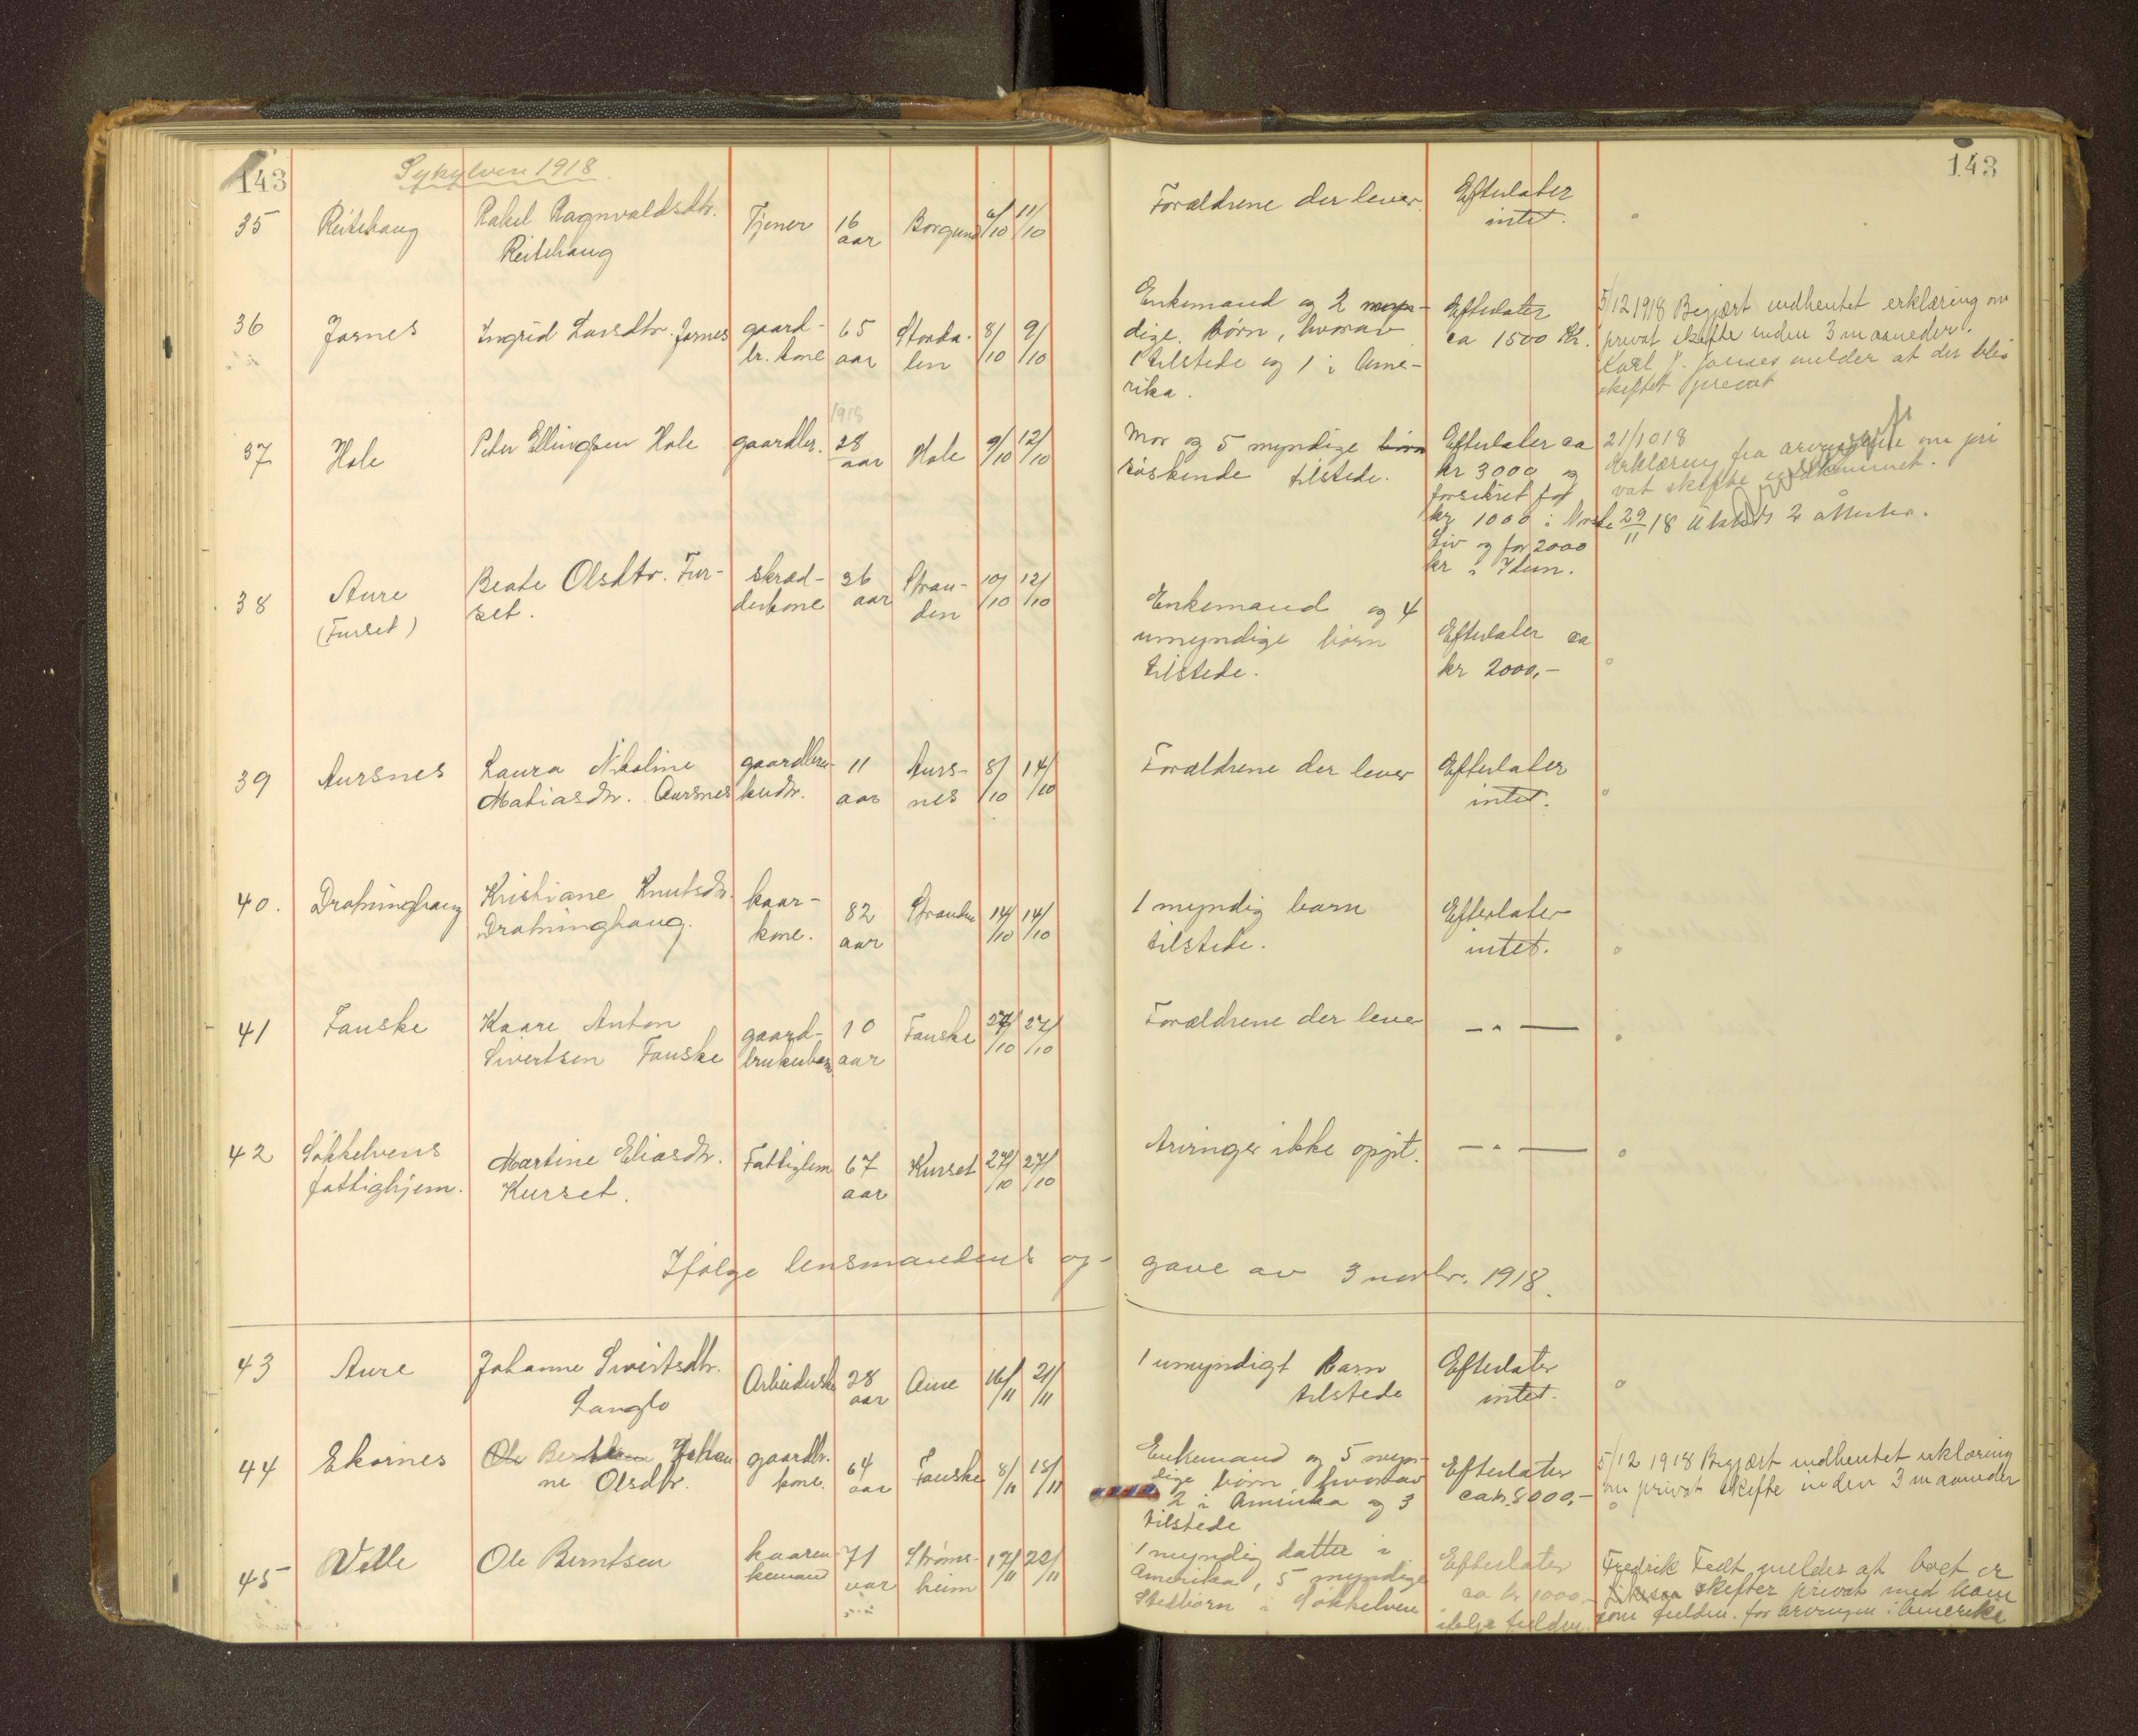 143
Sykylven 1918
143
35 Reitehaug Rakel Ragnvaldsdtr. Tjener 16 Borgund 6/10 11/10 Forældrene der lever. Efterlater
Reitehaug aar intet.
36 Jarnes Ingrid Larsdtr. Jarnes gaard- 65 Storda- 8/10 9/10 Enkemand og 2 myn- Efterlater 5/12 1918 Begjært indhentet erklæring om
br. kone aar len dige børn, hvorav ca 1500 Kr. privat skifte inden 3 maaneder.
1 tilstede og 1 i Ame- Karl J. Jarnes melder at der blir
rika. skiftet privat
1918
37 Hole Peter Ellingsen Hole gaardbr. 28 Hole 9/10 12/10 Mor og 5 myndige børn Efterlater ca 21/10 18
aar søskende tilstede. kr 3000 og Erklæring fra arvingerne om pri
forsikret for vat skifte indkommet.
kr 1000 i Norske 29/11 18 Utstedt 2 attester.
Liv og for 2000
kr i Idun.
38 Aure Beate Olsdtr. Fur- skræd- 36 Stran- 10/10 12/10 Enkemand og 4
(Furset) set. derkone aar den umyndige børn Efterlater ca
tilstede. kr 2000,-
39 Aursnes Laura Nikoline gaardbru- 11 Aurs- 8/10 14/10 Forældrene der lever Efterlater
Matiasdtr. Aursnes kerdtr. aar nes intet.
40. Drotninghaug Kristiane Knutsdtr. kaar- 82 Stranden 14/10 14/10 1 myndig barn Efterlater
Drotninghaug. kone. aar tilstede. intet.
41 Fauske Kaare Anton gaard- 10 Fauske 27/10 27/10 Forældrene der lever — " —
Sivertsen Fauske brukerbarn aar
42 Søkkelvens Martine Eliasdtr. Fattiglem 67 Kurset 27/10 27/10 Arvinger ikke opgit. — " —
fattighjem. Kurset. aar
Ifølge lensmandens op- gave av 3 novbr. 1918.
43 Aure Johanne Sivertsdtr. Arbeiderske 28 Aure 16/11 21/11 1 umyndigt Barn Efterlater
Langlo aar tilstede intet.
44 Ekornes Ole Berntsen Johan gaardbr. 64 Fauske 8/11 15/11 Enkemand og 5 myn- Efterlater 5/12 1918 Begjært indhentet erklæring
ne Olsdtr. kone. aar dige børn, hvorav ca kr. 8000,- om privat skifte inden 3 maaneder
2 i Amerika og 3
tilstede
45 Velle Ole Berntsen kaaren- 71 Strøms- 17/11 22/11 1 myndig datter i Efterlater Fredrik Tedt melder at boet er
kemand aar heim Amerika, 5 myndige ca kr 1000.- skifter privat med ham
Stedbørn i Søkkelven ifølge fuldm. som fuldm. for arvingen i Amerika